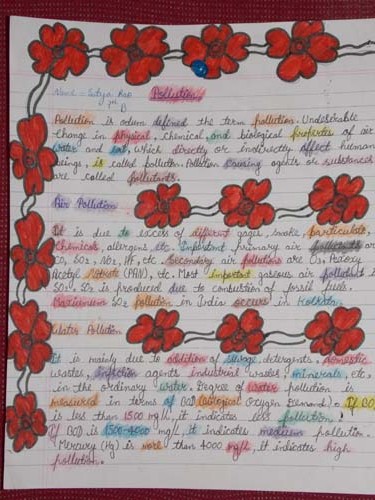 Name = Satya Rao
7th B
Pollution
Pollution is odum defined the term pollution. Undesirable
change in physical, chemical, and biological properties of air
water and soil, which directly or indirectly affect human
beings, is called pollution. Pollution causing agents or substances
are called pollutants.
Air Pollution
It is due to excess of different gages, smoke, particulate,
chemicals, allergens, etc. Important primary air pollutants are
CO, SO2, NO2, HF, etc. Secondary air pollutions are O3, Peroxy
Acetyl Nitrate (PAN), etc. Most important gaseous air pollutant is
SO2. SO2 is produced due to combustion of fossil fuels.
Maximum SO2 pollution in India occurs in Kolkata.
Water Pollution
It is mainly due to addition of sewage, detergents, domestic
wastes, infection agents industrial wastes minerals, etc,
in the ordinary water. Degree of water pollution is
measured in terms of (Biological Oxygen Demand). If
is less than 1500 mg/L, it indicates less pollution.
If is 1500-4000 mg/L, it indicates medium pollution.
Mercury (Hg) is more than 4000 mg/L, it indicates high
pollution.